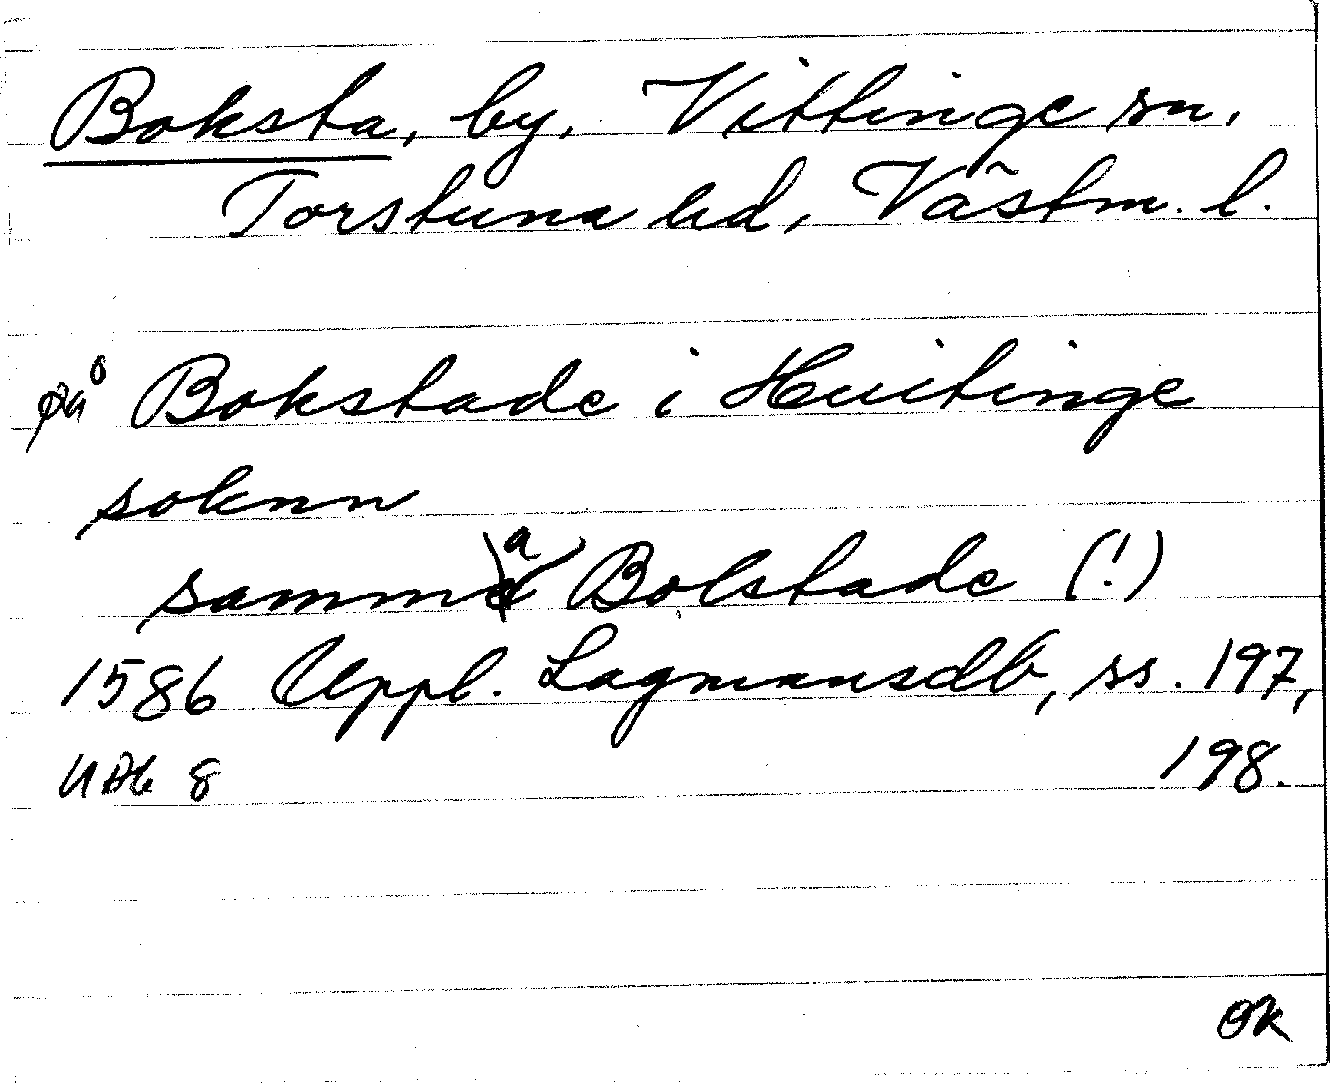 Boksta, by, Vittinge sn,
Torstuna hd, Västm. l.
på Bokstade i Huitinge
soknn
samma Bolstade (!)
1586 Uppl. Lagmansdb, ss. 197,
198.
UDb 8
OK